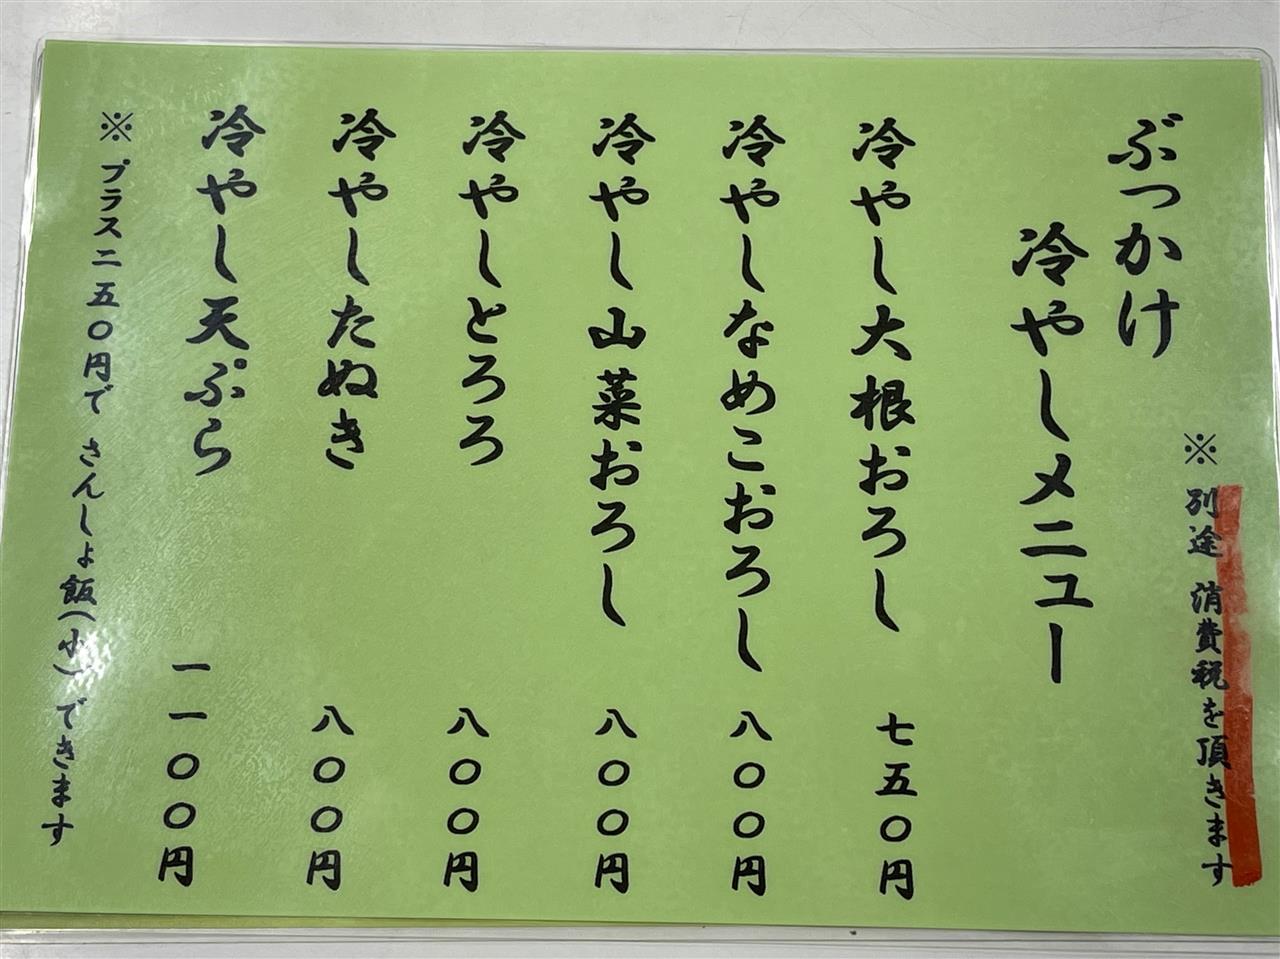 ※別途 消費税を頂きます
ぶっかけ
冷やしメニュー
冷やし大根おろし 七五〇円
冷やしなめこおろし 八〇〇円
冷やし山菜おろし 八〇〇円
冷やしとろろ 八〇〇円
冷やしたぬき 八〇〇円
冷やし天ぷら 一一〇〇円
※プラス二五〇円で さんしょ飯(小)できます